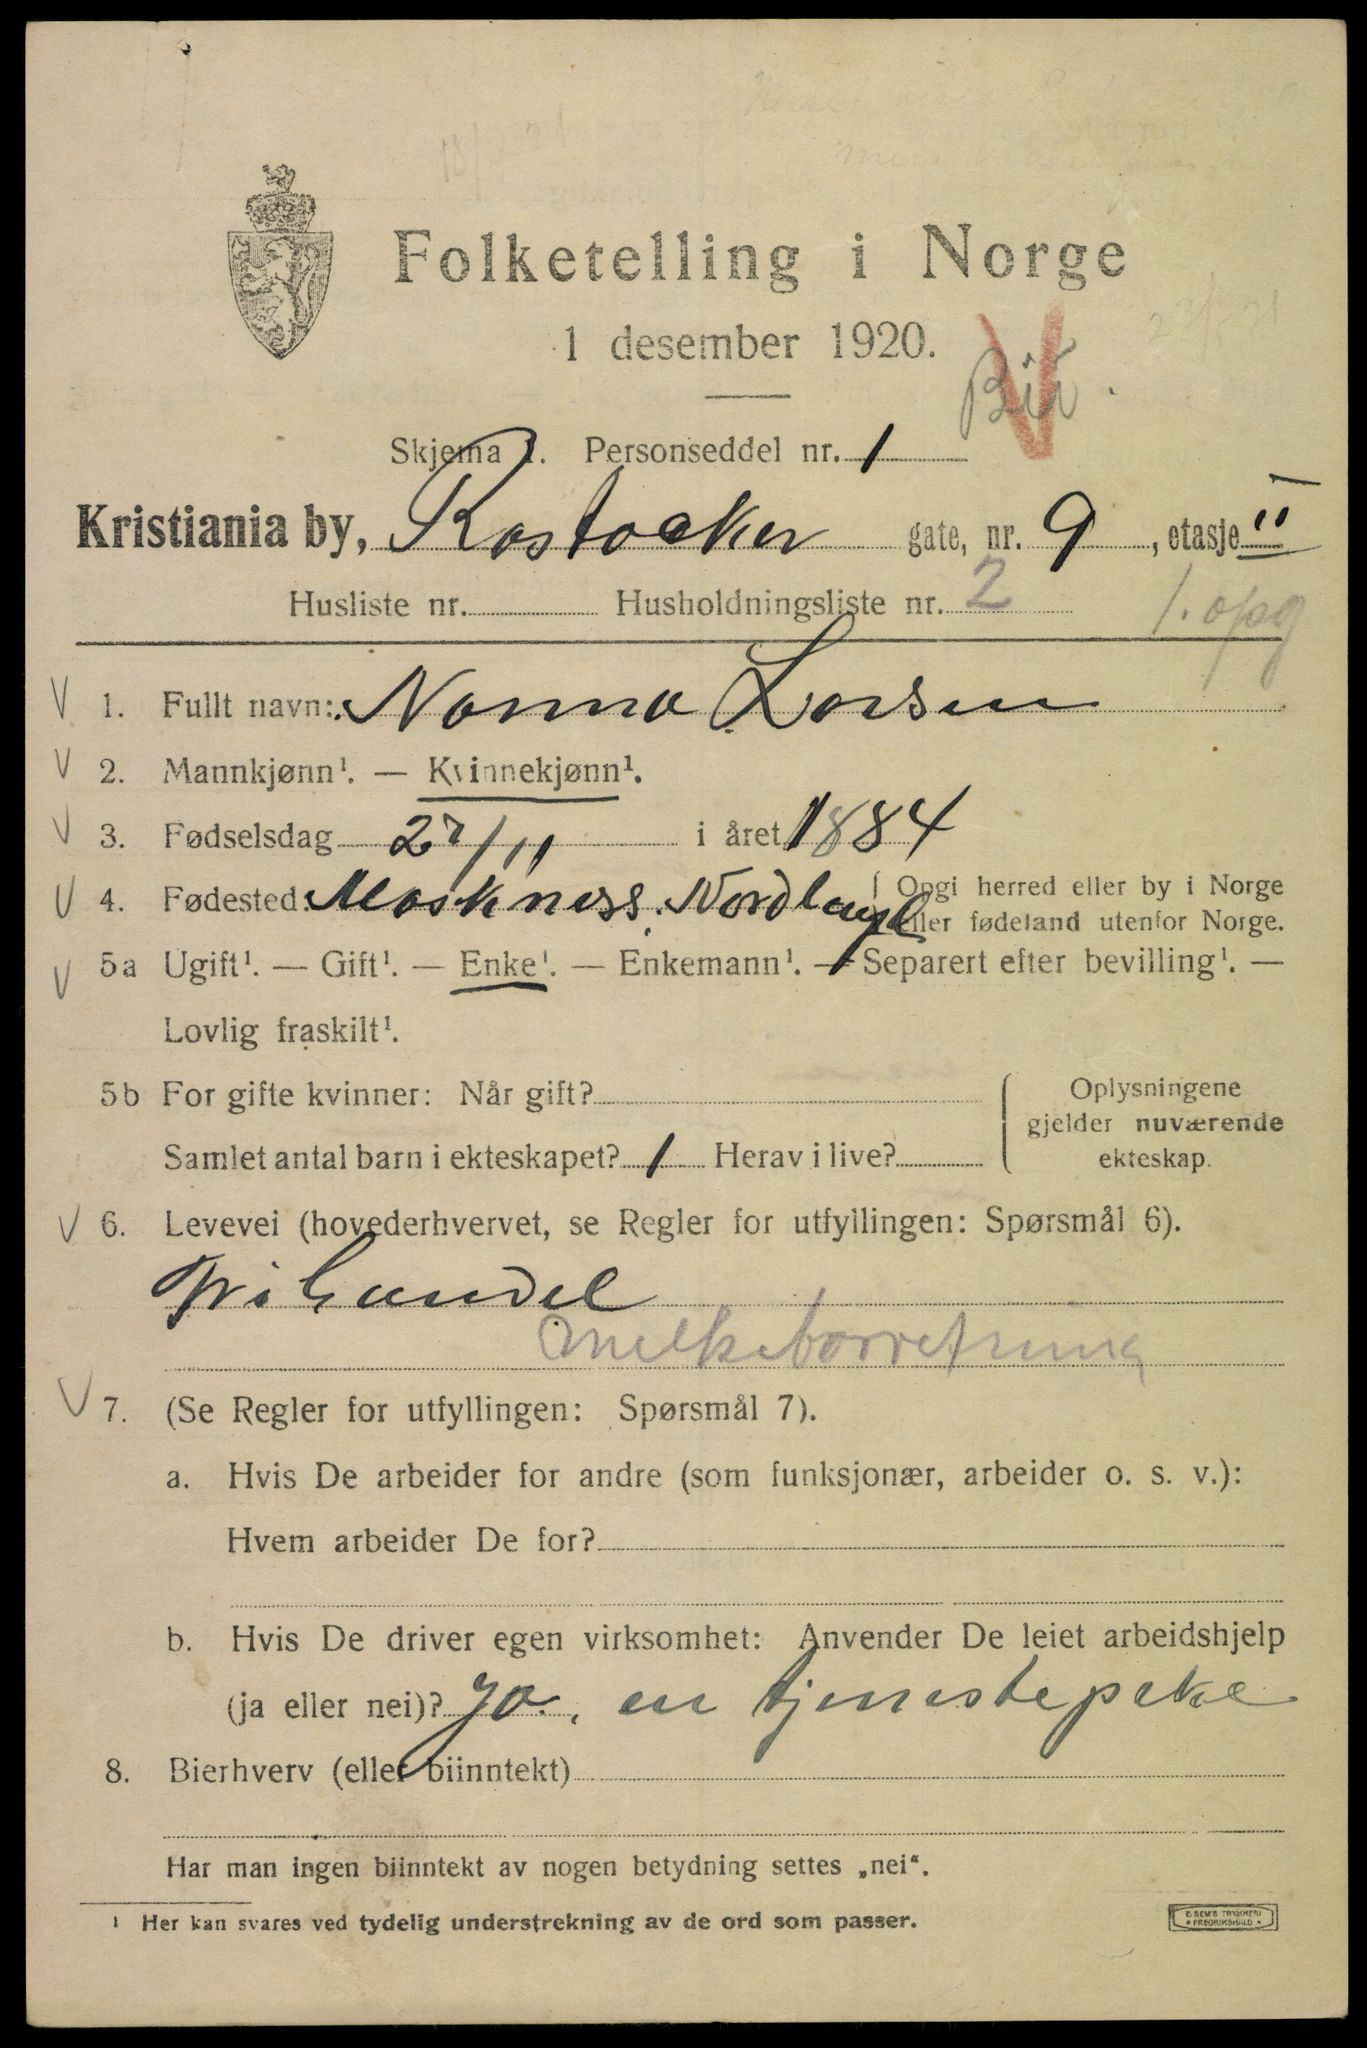 Folketelling i Norge
1 desember 1920.
Skjema 1. Personseddel nr. 1
Kristiania by, Rostocker gate, nr. 9, etasje II
Husliste nr. Husholdningsliste nr. 2 1. opg
1. Fullt navn: Nanna Larsen
2. Mannkjønn¹. — Kvinnekjønn¹.
3. Fødselsdag 27/11 i året 1884
4. Fødested: Moskness. Nordland { Opgi herred eller by i Norge
eller fødeland utenfor Norge.
5a Ugift¹. — Gift¹. — Enke¹. — Enkemann¹. — Separert efter bevilling¹. —
Lovlig fraskilt¹.
5b For gifte kvinner: Når gift?
Samlet antal barn i ekteskapet? 1 Herav i live?
Oplysningene
gjelder nuværende
ekteskap.
6. Levevei (hovederhvervet, se Regler for utfyllingen: Spørsmål 6).
Frihandel
Melkeforretning
7. (Se Regler for utfyllingen: Spørsmål 7).
a. Hvis De arbeider for andre (som funksjonær, arbeider o. s. v.):
Hvem arbeider De for?
b. Hvis De driver egen virksomhet: Anvender De leiet arbeidshjelp
(ja eller nei)? Ja., en tjenestepike
8. Bierhverv (eller biinntekt)
Har man ingen biinntekt av nogen betydning settes „nei“.
¹ Her kan svares ved tydelig understrekning av de ord som passer.
E SEM'S TRYKKERI
FREDRIKSHALD